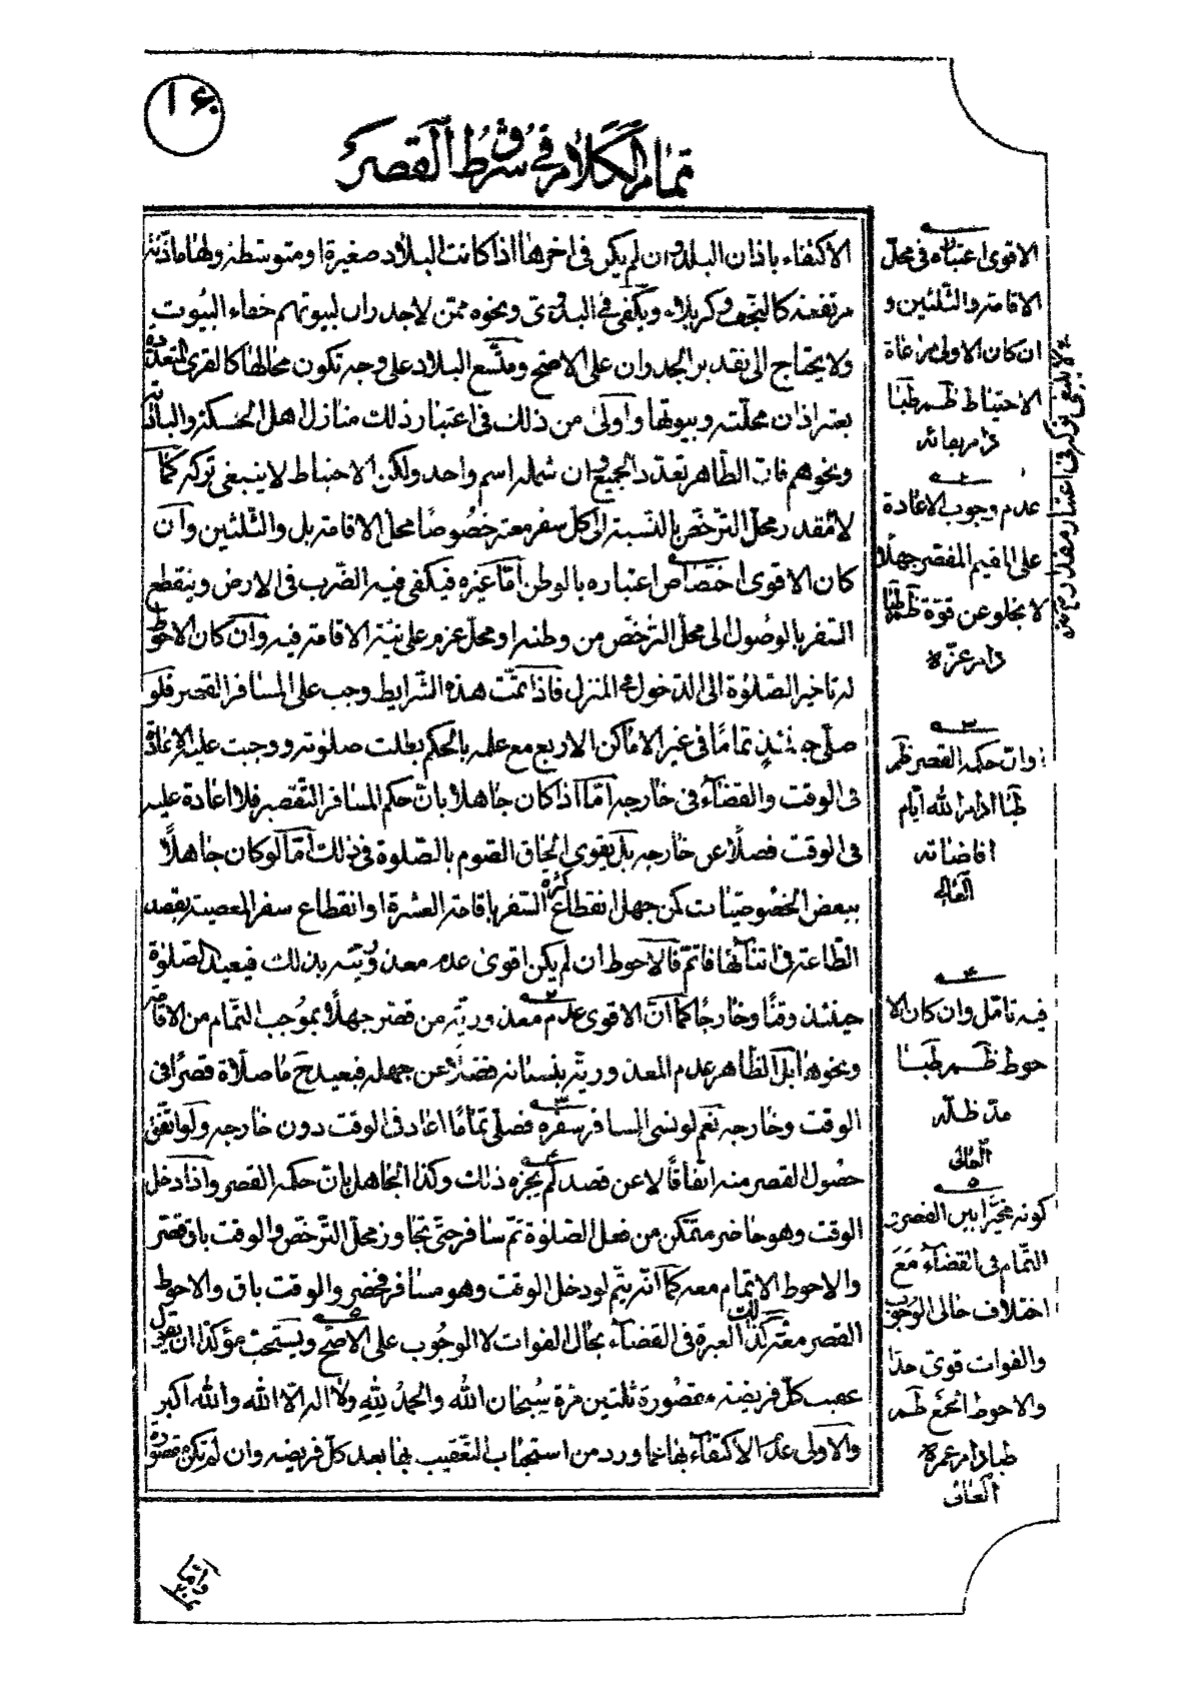 ١٠٦
تمام الكلام فى شرط القصر
الاكتفاء باذان البلد وان لم يكن فى اخرها اذا كانت البلاد صغيرة او متوسطة ولها ماذنة
مرتفعة كالنجف وكربلاء ويكفى فى البدوى ونحوه ممن لا جدران لبيوتهم خفاء البيوت
ولا يحتاج الى تقدير الجدران على الاصح ومتسع البلاد على وجه تكون محالها كالقرى المتعددة
يعتبر اذان محلته وبيوتها واولى من ذلك فى اعتبار ذلك منازل اهل الحسكة والبادية
ونحوهم فان الظاهر تعدد الجميع وان شمله اسم واحد ولكن الاحتياط لا ينبغى تركه كما
لا مقدر محل الترخص بالنسبة الى كل سفر معه خصوصا محل الاقامة بل والثلثين وان
كان الاقوى اختصاص اعتباره بالوطن اما غيره فيكفى فيه الضرب فى الارض وينقطع
السفر بالوصول الى محل الترخص من وطنه او محل عزم على نية الاقامة فيه وان كان الاحوط
له تاخير الصلوة الى الدخول فى المنزل فاذا تمت هذه الشرايط وجب على المسافر القصر فلو
صلى حينئذ تماما فى غير الاماكن الاربع مع علمه بالحكم بطلت صلوته ووجبت عليه الاعادة
فى الوقت والقضاء فى خارجه اما اذا كان جاهلا بان حكم المسافر التقصير فلا اعادة عليه
فى الوقت فضلا عن خارجه بل يقوى الحاق الصوم بالصلوة فى ذلك اما لو كان جاهلا
ببعض الخصوصيات كمن جهل انقطاع كثرة السفر باقامة العشرة او انقطاع سفر المعصية بقصد
الطاعة فى اثنائها فاتم فالاحوط ان لم يكن اقوى عدم معذوريته بذلك فيعيد الصلوة
حينئذ وقتا وخارجا كما ان الاقوى عدم معذورية من قصر جهلا بموجب التمام من الاقامة
ونحوها بل الظاهر عدم المعذورية بنسيانه فضلا عن جهله فيعيد ح ما صلاة قصرا فى
الوقت وخارجه نعم لو نسى المسافر سفره فصلى تماما اعاد فى الوقت دون خارجه ولو اتفق
حصول القصر منه اتفاقا لا عن قصد لم يجزه ذلك وكذا الجاهل بان حكمه القصر واذا دخل
الوقت وهو حاضر متمكن من فعل الصلوة ثم سافر حتى تجاوز محل الترخص والوقت باق قصر
والاحوط الاتمام معه كما انه يتم لو دخل الوقت وهو مسافر فحضر والوقت باق والاحوط
القصر معه كذلك العبرة فى القضاء بحال الفوات لا الوجوب على الاصح ويستحب مؤكدا ان يقول
عقيب كل فريضة مقصورة ثلثين مرة سبحان الله والحمد لله ولا اله الا الله والله اكبر
والاولى عدم الاكتفاء بها عما ورد من استحباب التعقيب بها بعد كل فريضه وان لم تكن مقصورة
واما
الاقوى اعتباره فى محل
الاقامة والثلثين و
ان كان الاولى مراعاة
الاحتياط ظم طبا
دام بقائه
لا ينبغى تركه فى اعتبار مقدار
٢
عدم وجوب الاعادة
على المقيم المقصر جهلا
لا يخلو عن قوة ظم طبا
دام عزه
٣
وان حكمه القصر ظم
طبا ادام الله ايام
افاضاته
العالى
٤
فيه تامل وان كان الا
حوط ظم طبا
مد ظله
العالى
٥
كونه مخيرا بين القصر و
التمام فى القضاء مع
اختلاف حالى الوجوب
والفوات قوى جدا
والاحوط الجمع ظم
طبا دام عمره
العالى